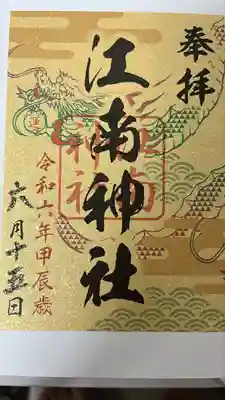 奉拝
江南神社
江南神社
令和六年甲辰歳
六月十五日